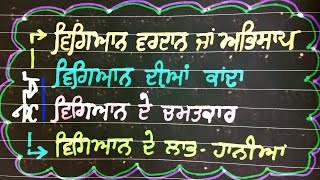 ਵਿਗਿਆਨ ਵਰਦਾਨ ਜਾਂ ਅਭਿਸ਼ਾਪ
ਵਿਗਿਆਨ ਦੀਆਂ ਕਾਢਾਂ
ਵਿਗਿਆਨ ਦੇ ਚਮਤਕਾਰ
ਵਿਗਿਆਨ ਦੇ ਲਾਭ - ਹਾਨੀਆਂ